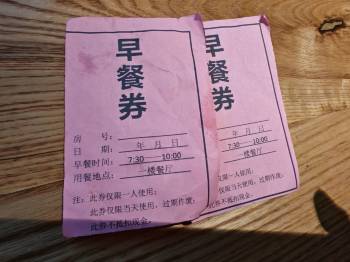 早餐券
房 号:
日 期: 年 月 日
早餐时间: 7:30——10:00
用餐地点: 一楼餐厅
注: 此券仅限一人使用;
此券仅限当天使用, 过期作废;
此券不抵扣现金。
早餐券
年 月 日
7:30——10:00
一楼餐厅
限一人使用;
仅限当天使用, 过期作废;
此券不抵扣现金。